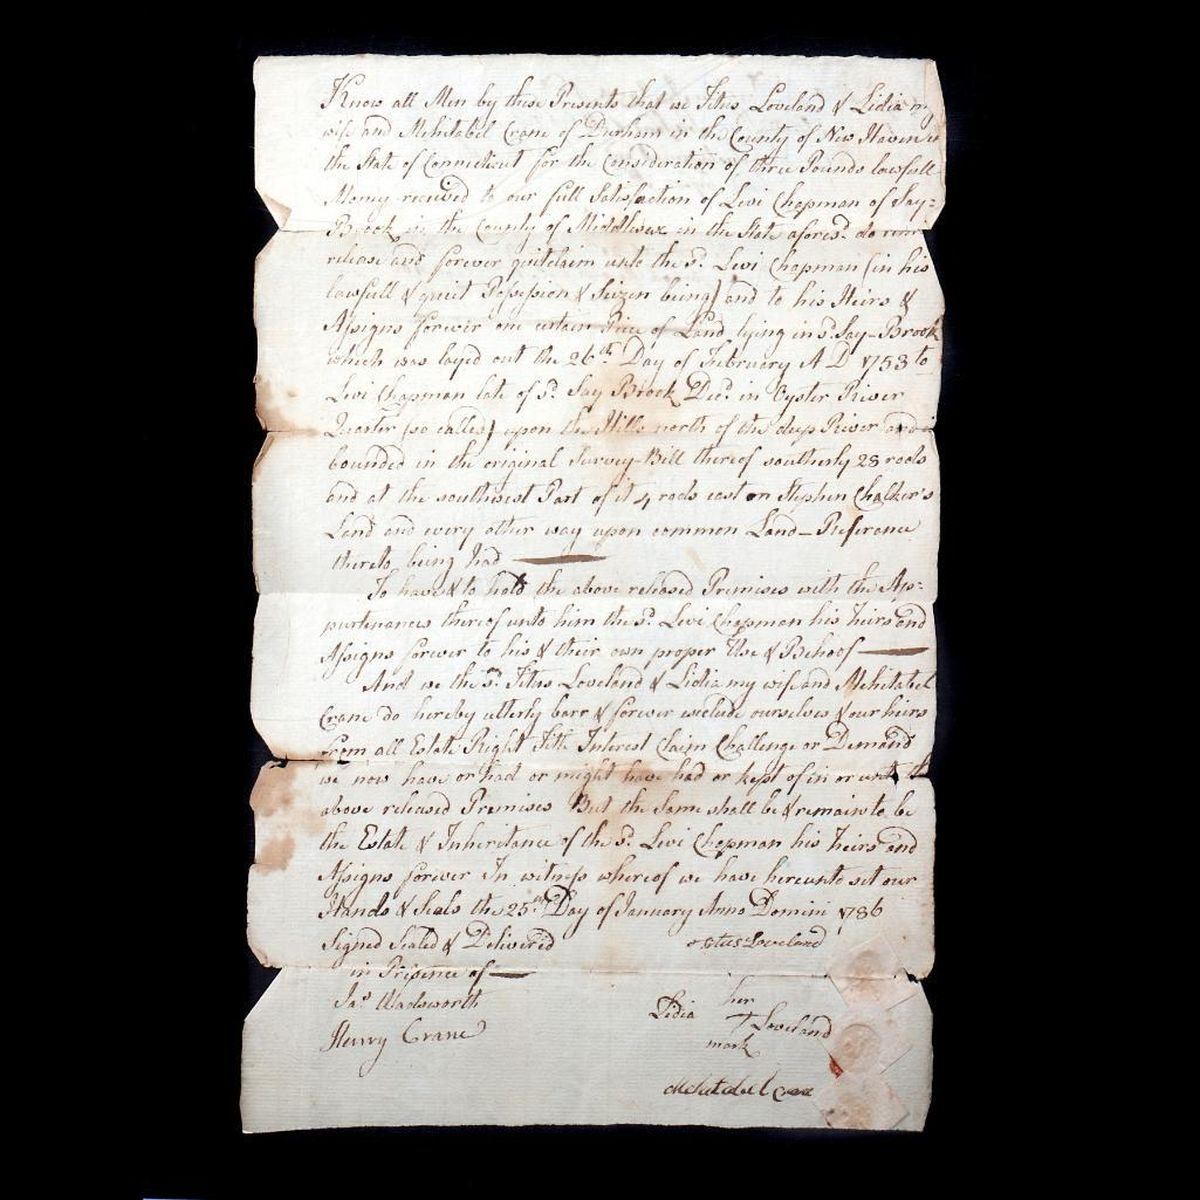 Know all Men by these Presents that we Titus Loveland & Lidia my
wife and Mehitabel Crane of Durham in the County of New Haven in
the State of Connecticut for the Consideration of three Pounds lawfull
Money received to our full Satisfaction of Levi Chapman of Say=
Brook in the County of Middlesex in the State aforesd. do remise
release and forever quitclaim unto the sd. Levi Chapman (in his
lawfull & quiet Possession & Seizen being) and to his Heirs &
Assigns forever one certain Piece of Land lying in sd. Say-Brook
which was layed out the 26th Day of February A D 1753 to
Levi Chapman late of sd. Say Brook Decd. in Oyster River
Quarter (so called) upon the Hills north of the deep River and is
bounded in the original Survey-Bill thereof southerly 28 rods
and at the southwest Part of it 4 rods east on Stephen Chalker's
Land and every other way upon common Land_Reference
thereto being had
To have & to hold the above released Premises with the Ap=
purtenances thereof unto him the sd. Levi Chapman his Heirs and
Assigns forever to his & their own proper Use & Behoof
And we the sd. Titus Loveland & Lidia my wife and Mehitabel
Crane do hereby utterly barr & forever exclude ourselves & our heirs
from all Estate Right Title Interest Claim Challenge or Demand
we now have or had or might have had or kept of in or unto the
above released Premises But the Same shall be & remain to be
the Estate & Inheritance of the sd. Levi Chapman his Heirs and
Assigns forever In witness whereof we have hereunto set our
Hands & Seals the 25th Day of January Anno Domini 1786
Signed Sealed & Delivered
in Presence of
Jas. Wadsworth
Henry Crane
Titus Loveland
her
Lidia + Loveland
mark
Mehitabel Crane